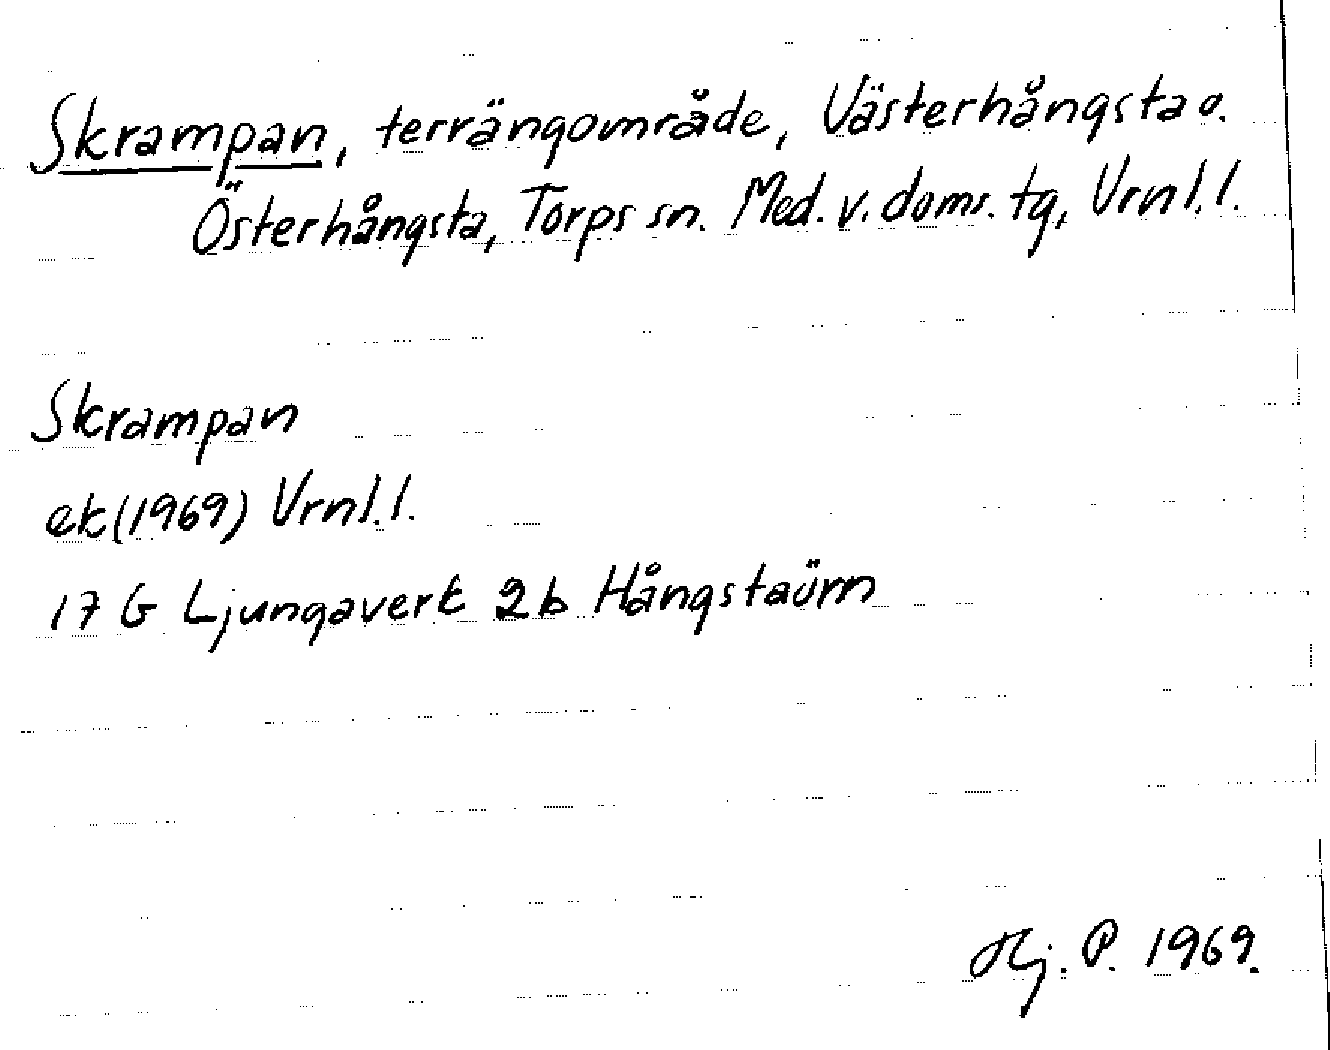 Skrampan, terrängområde, Västerhångsta o.
Österhångsta, Torps sn. Med. v. doms. tg, Vrnl. l.
Skrampan
ek (1969) Vrnl. l.
17 G Ljungaverk 2b Hångstaörn
Hj. P. 1969.